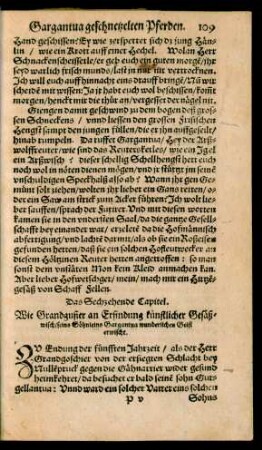 Gargantua geschnetzelten Pferden. 109
Hand geschissen: Ey wie zersperret sich di jung Häns-
lin / wie ein Krott auff einer Hechel. Wolan Herr
Schnackenscheisserle / geb euch ein guten morge / jhr
seyd warlich frisch munds / laßt in nur nit vertrocknen.
Ich will euch auff hinnacht eins drauff bringe / Nu wir
scheidē mit wissen: Ja jr habt euch wol beschissen / kommt
morgen / henckt mir die thür an / vergesset der nägel nit.
Giengen damit geschwind zu dem bogen deß grossen
Schneckens / vnnd liessen den grossen
Hengst sampt den jungen füllen / die er jhn auffgesetzt /
hinab rumpeln. Da ruffet Gargantua / Hey der
wolffreuter / wie sind das Reuterskerles / wie ein Igel
ein Arßwisch : dieser schellig Schellhengst hett euch
noch wol in nöten dienen mögen / vnd jr stürtzt jm seine
vnschuldigen Speckhalß also ab? Wann jhr gen
solt ziehen / wolten jhr lieber ein Gans reiten / oder
ein Saw am strick zum Acker führen? Ich wolt lieber
sauffen / sprach der Furirer. Vnd mit diesen worten
kamen sie in den vndersten Saal / da die gantze Gesellschafft
bey einander war / erzelete da die Hofmännisch
abfertigung / vnd lachē darmit / als ob sie ein
gefunden hetten / daß sie ein solchen Hoffreutvorker an
diesem Höltzinen Reuter hetten angetroffen : so man
sonst dem vnstäten Mon kein Kleid anmachen kan.
Aber lieber Hofwerscher / mein / mach mir ein
gesäß von Schaff Fellen.
Das Sechzehende Capitel.
Wie Grandgusier an Erfindung künstlicher Gesäß-
wisch / seins Söhnleins Gargantua wunderlichen Geist
erwischt.
ZV Endung der fünfften Jahrzeit / als der Herr
Grandgoschier von der ersiegten Schlacht bey
Nulleprück gegen die Gähnarrier wider gesund
heimkehrt / da besucht er bald seine sohn Gurgellantua
: Vnnd ward ein solcher Vatter eins solchen
P v Sohns